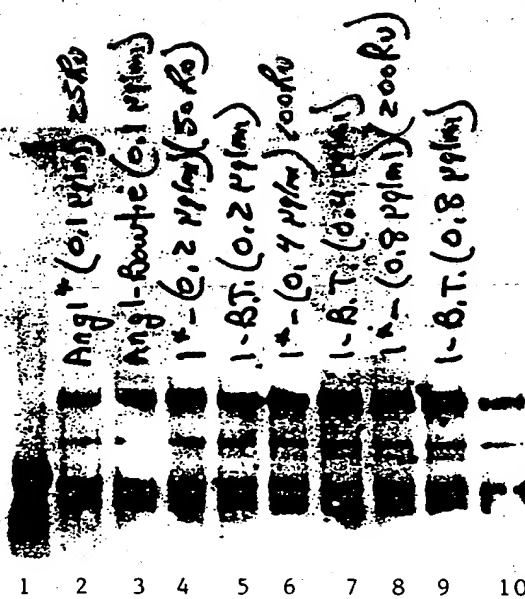 Ang 1* (0.1 μg/ml) 25Ru
Ang 1-Bowtie (0.1 μg/ml)
1*-(0.2 μg/ml)(50Ru)
1-B.T. (0.2 μg/ml)
1*-(0.4 μg/ml) 200Ru
1-B.T. (0.4 μg/ml)
1*-(0.8 μg/ml)(200Ru)
1-B.T. (0.8 μg/ml)
1 2 3 4 5 6 7 8 9 10